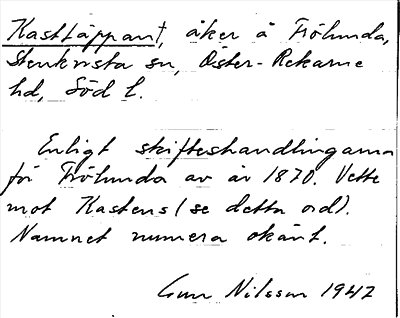 Kasttäppan†, åker å Frölunda,
Stenkvista sn, Öster-Rekarne
hd, Söd l.
Enligt skifteshandlingarna
för Frölunda av år 1870. Vette
mot Kastens (se detta ord).
Namnet numera okänt.
Gun Nilsson 1947